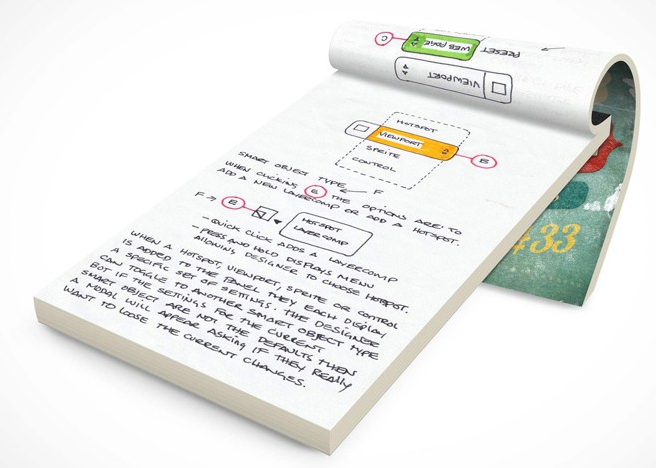 C
WEB PAGE
PRESET
VIEWPORT
HOTSPOT
VIEWPORT
SPRITE
CONTROL
B
SMART OBJECT TYPE
F
WHEN CLICKING E THE OPTIONS ARE: TO
ADD A NEW LAYERCOMP OR ADD A HOTSPOT.
F → E
HOTSPOT
LAYERCOMP
- QUICK CLICK ADDS A LAYERCOMP
- PRESS AND HOLD DISPLAYS MENU
ALLOWING DESIGNER TO CHOOSE HOTSPOT.
WHEN A HOTSPOT, VIEWPORT, SPRITE OR CONTROL
IS ADDED TO THE PANEL THEY EACH DISPLAY
A SPECIFIC SET OF SETTINGS. THE DESIGNER
CAN TOGGLE TO ANOTHER SMART OBJECT TYPE
BUT IF THE SETTINGS FOR THE CURRENT
SMART OBJECT ARE NOT THE DEFAULTS THEN
A MODAL WILL APPEAR ASKING IF THEY REALLY
WANT TO LOOSE THE CURRENT CHANGES.
#33